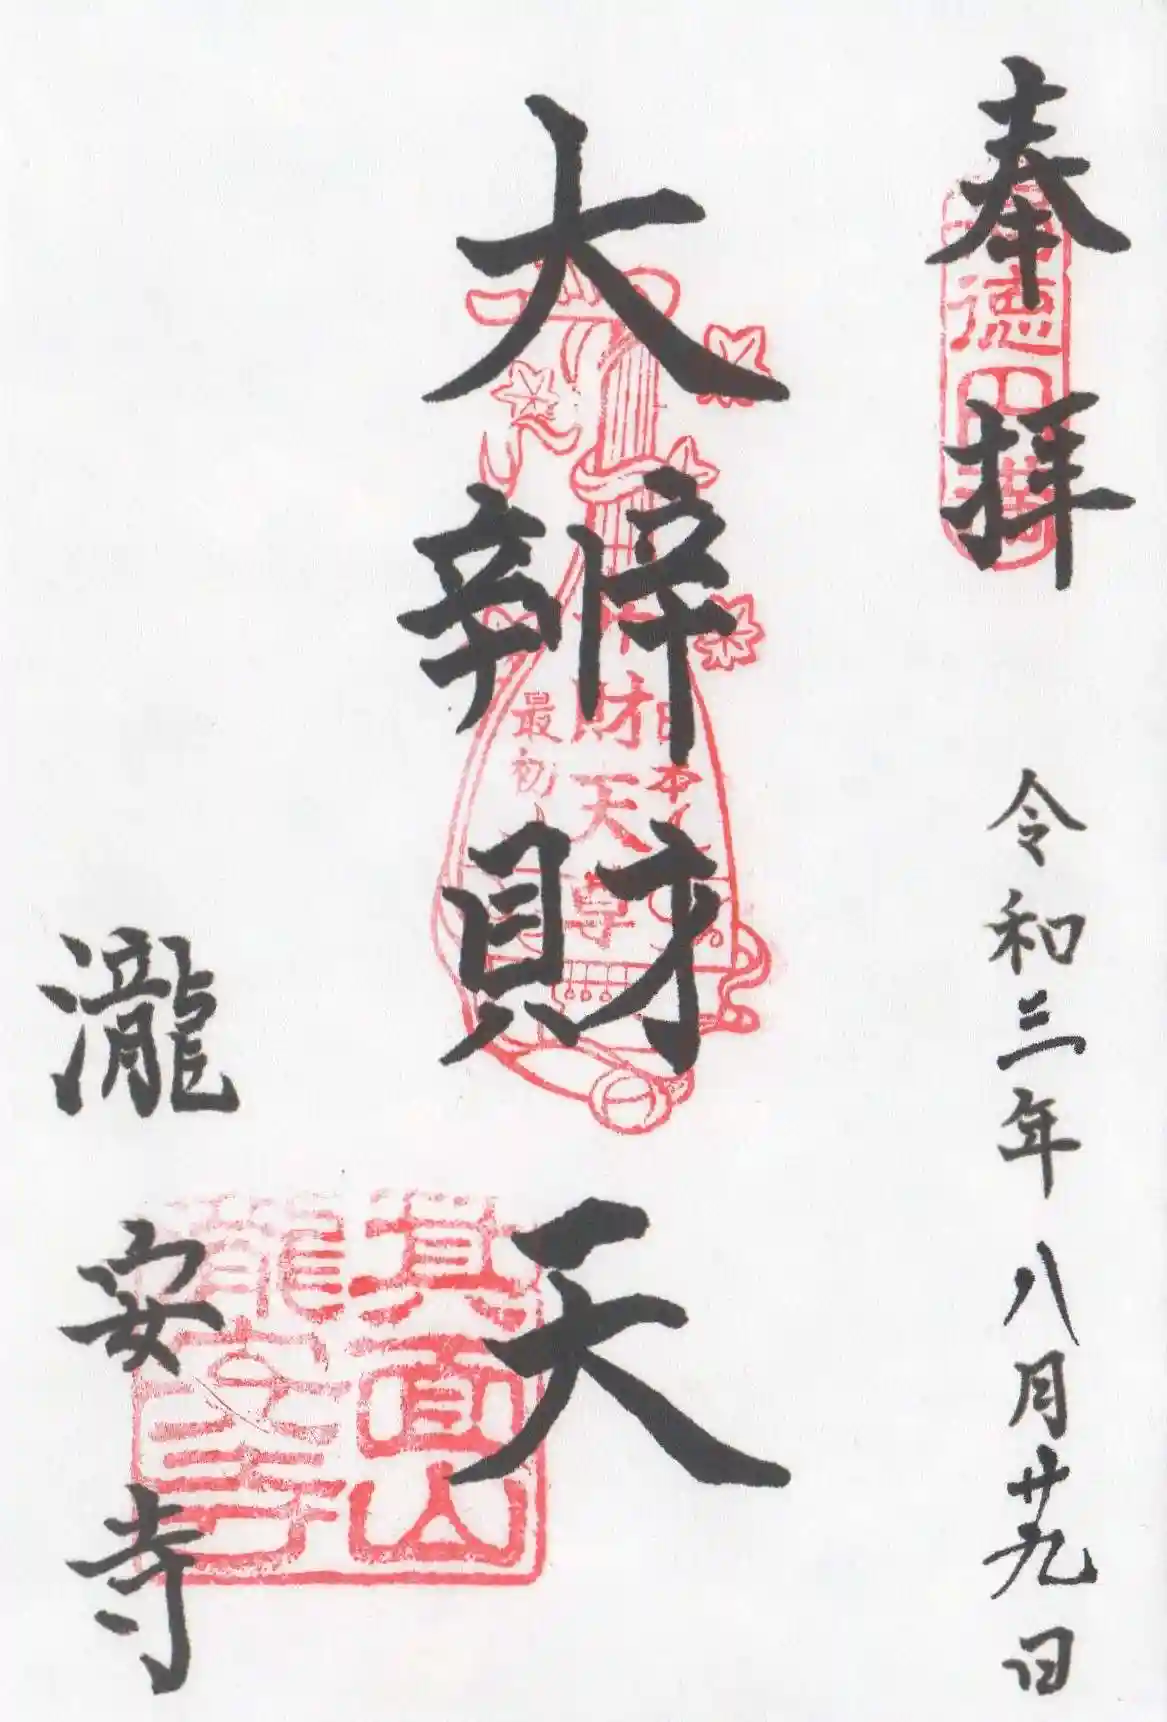 奉拝
令和三年八月廿九日
大辨財天
日本
財天尊
最初
箕面山
瀧安寺
瀧安寺